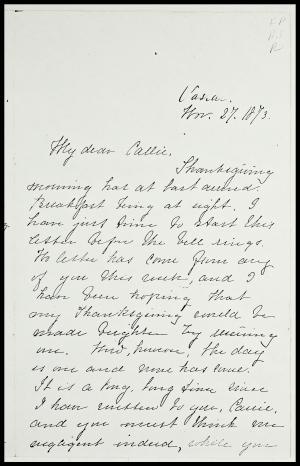 Vassar.
Nov. 27. 1873.
My dear Callie,
Thanksgiving
morning has at last arrived.
Breakfast being at eight, I
have just time to start this
letter before the bell rings.
No letter has come from any
of you this week, and I
have been hoping that
my Thanksgiving would be
made brighter by receiving
one. Now, however, the day
is one and none has come.
It is a long, long time since
I have written to you, Carrie,
and you must think me
negligent indeed, while you